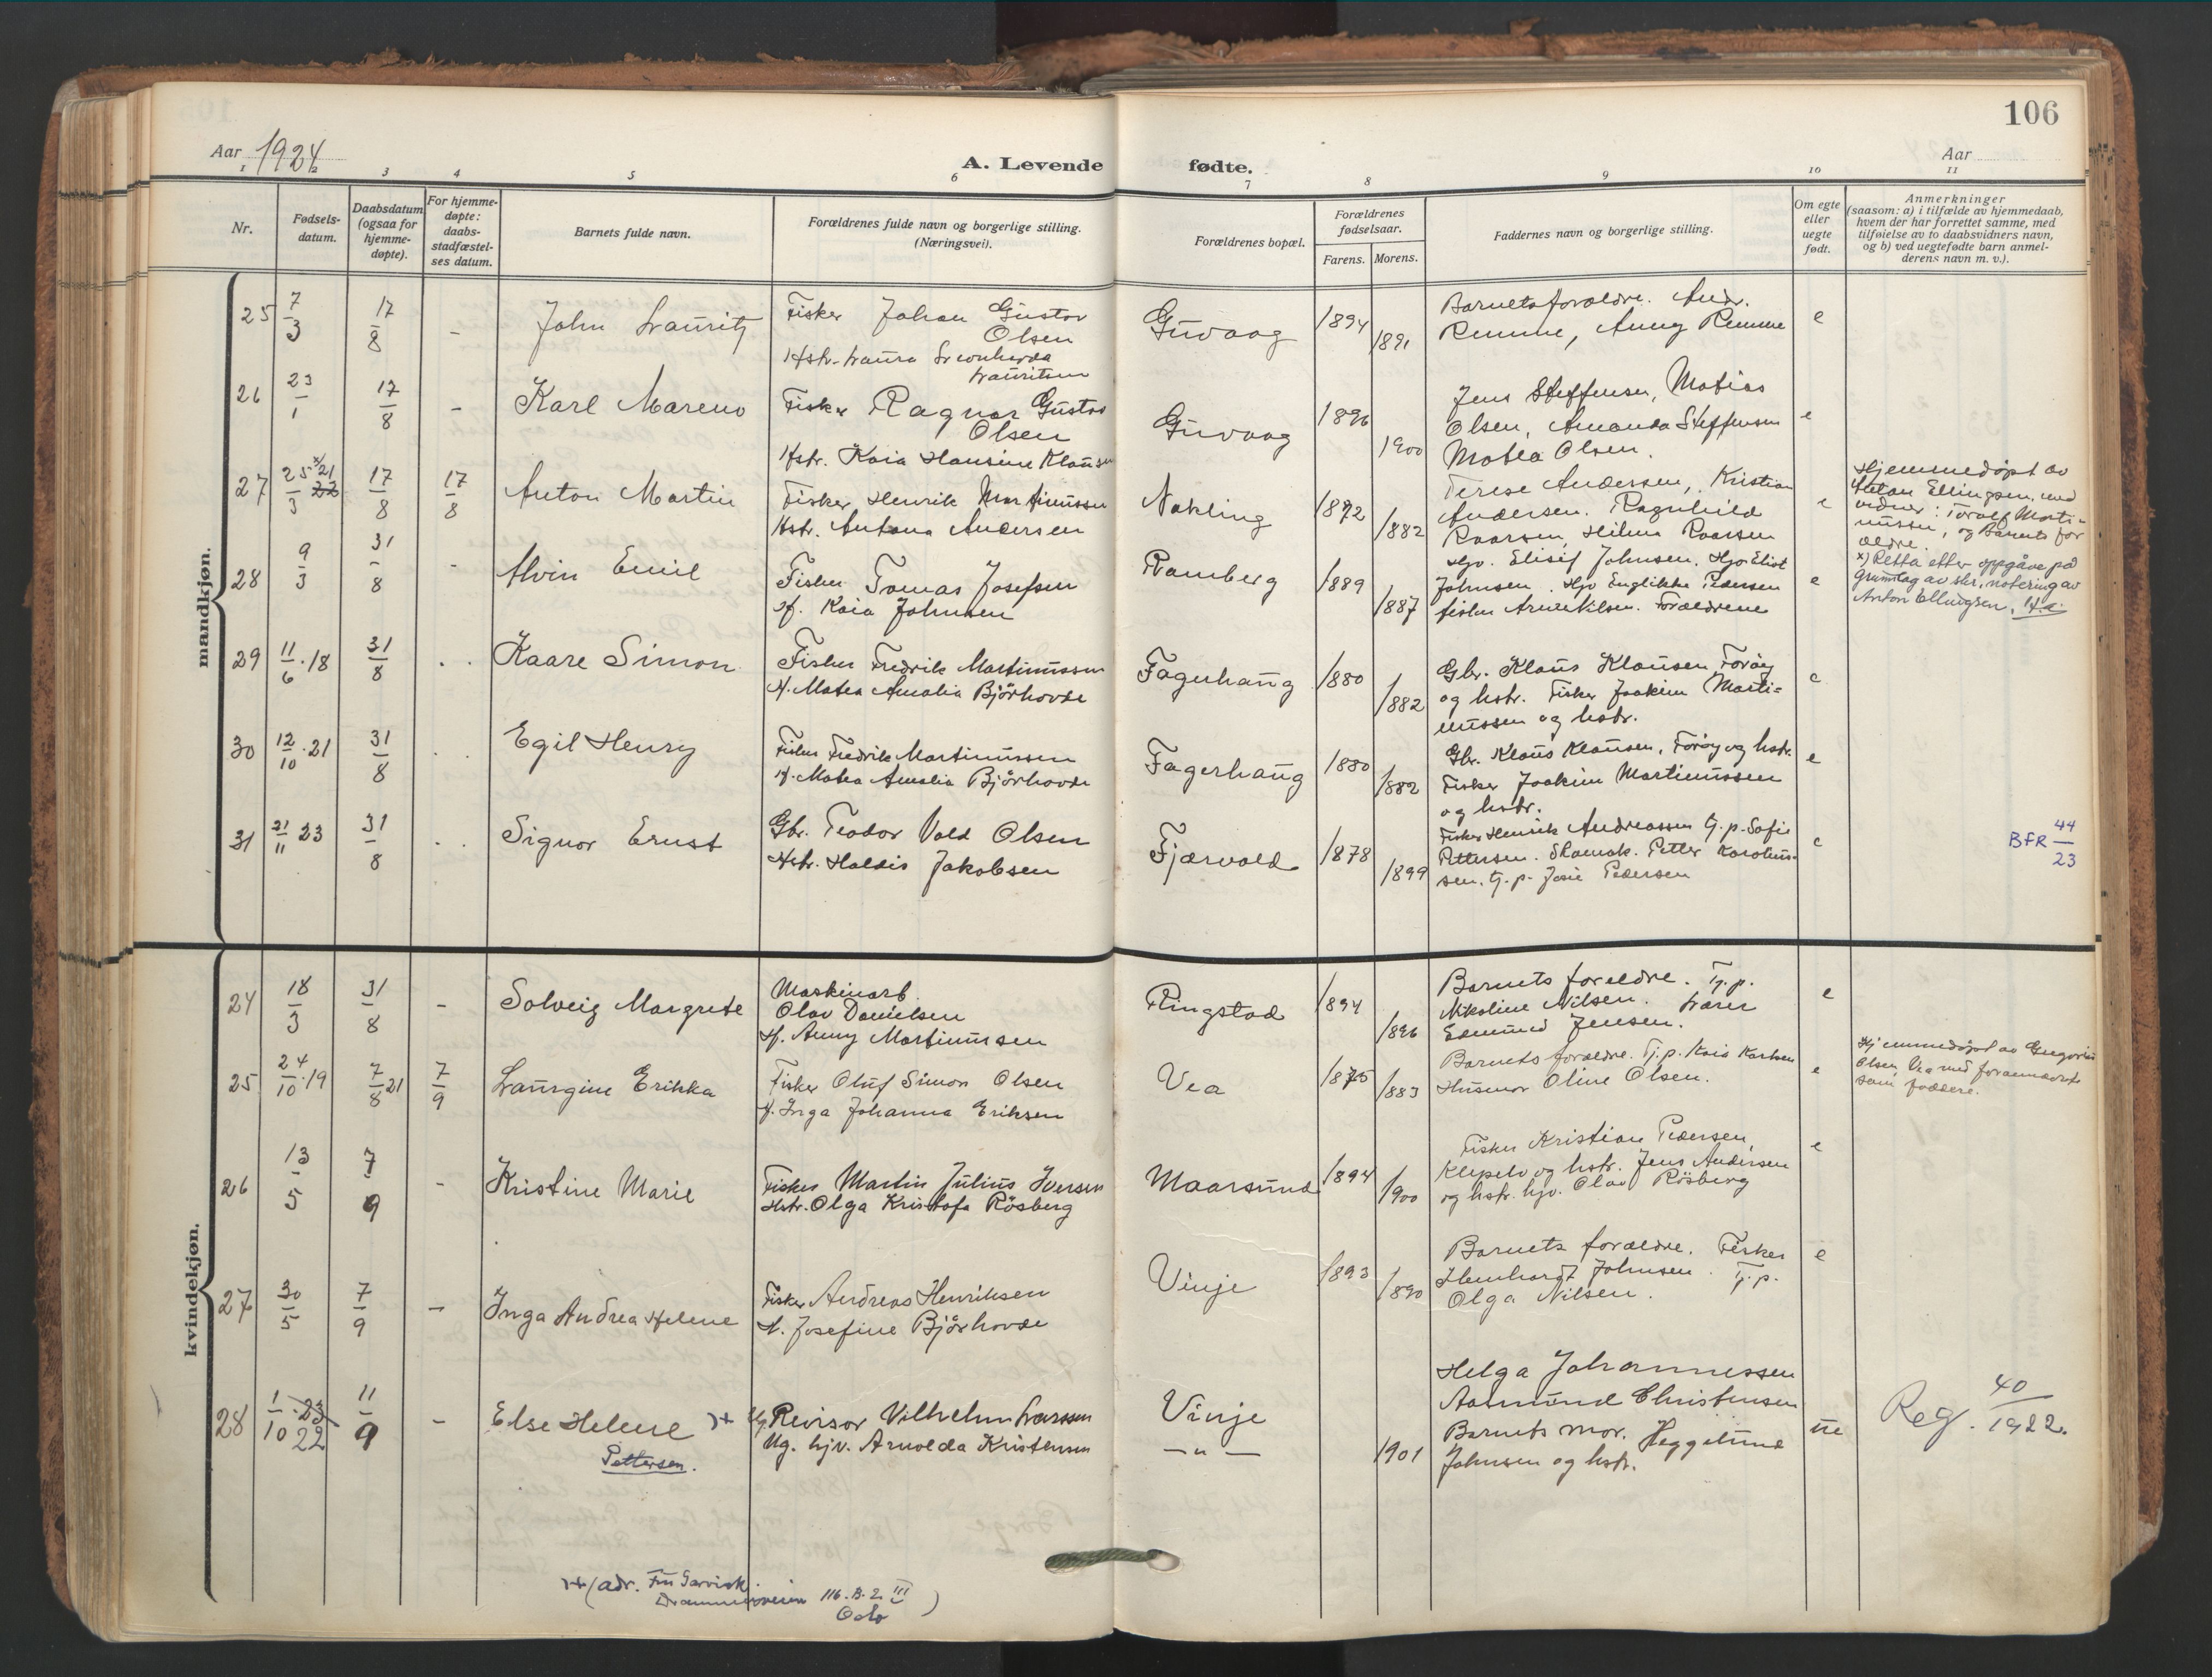 106
Aar 1924
A. Levende fødte.
Aar
1 2 3 4 5 6 7 8 9 10 11
Nr.
Fødsels-
datum.
Daabsdatum
(ogsaa for
hjemme-
døpte).
For hjemme-
døpte:
daabs-
stadfæstel-
ses datum.
Barnets fulde navn.
Forældrenes fulde navn og borgerlige stilling.
(Næringsvei).
Forældrenes bopæl.
Forældrenes
fødselsaar.
Farens. Morens.
Faddernes navn og borgerlige stilling.
Om egte
eller
uegte
født.
Anmerkninger
(saasom: a) i tilfælde av hjemmedaab,
hvem der har forrettet samme, med
tilføielse av to daabsvidners navn,
og b) ved uegtefødte barn anmel-
derens navn m. v.).
mandkjøn.
25 7/3 17/8 - John Lauritz
Fisker Johan Gustav
Olsen
Hstr. Laura
Lauritsen
Guvaag 1894 1891
Barnets forældre. Andr.
Remme, Anny Remme
e
26 23/1 17/8 - Karl Mareno
Fisker Ragnar Gustav
Olsen
Hstr. Kaia Hansine Klausen
Guvaag 1896 1900
Jens Steffensen, Matias
Olsen, Amanda Steffensen
Matea Olsen.
e
27 25/3 x) 21 22 17/8 17/8 Anton Martin
Fisker Henrik Martinussen
Hstr. Antona Andersen
Nøkling 1872 1882
Terese Andersen, Kristian
Andersen. Ragnhild
Roarsen, Hilma Roarsen
e
Hjemmedøpt av
Anton Ellingsen, med
vidner: Torolf Marti-
nussen, og Barnets for
ældre.
x) Retta etter oppgåve på
Grunnlag av skr. notering av
Anton Ellingsen.
28 9/3 31/8 - Alvin Emil
Fisker Tomas Josefsen
H. Kaia Johnsen
Ramberg 1889 1887
Hjv. Elisif Johnsen. Hjv Eliot
Johnsen. Hjv Englikke Pedersen
fisker Arne Nilsen. Forældrene
e
29 11/6 . 18 31/8 . . Kaare Simon
Fisker Fredrik Martinussen
H. Matea Amalia Björhovde
Fagerhaug 1880 1882
Gbr. Klaus Klausen Foröy
og hstr. Fisker Joakim Marti-
nussen og hstr.
e
30 12/10 . 21 31/8 . Egil Henry
Fisker Fredrik Martinussen
H. Matea Amalia Björhovde
Fagerhaug 1880 1882
Gbr. Klaus Klausen, Foröy og hstr.
Fisker Joakim Martinussen
og hstr.
e
31 21/11 23 31/8 . . Signor Ernst
Gbr. Teodor Vold Olsen
Hstr. Haldis Jakobsen
Fjærvold 1878 1899
Fisker Henrik Andreassen tj. p. Sofie
Pettersen. Skomak. Petter Karolius-
sen. tj. p. Josie Pedersen
e
BFR 44/23
kvindekjøn.
24 18/3 31/8 - Solveig Margrete
Maskinarb.
Olav Danielsen
H. Anny Martinussen
Ringstad 1894 1896
Barnets foreldre. Tj. p.
Nikoline Nilsen. Lærer
Edmund Jensen.
e
25 24/10 . 19 7/8 21 7/9 Laurgine Erikka
Fisker Oluf Simon Olsen
H. Inga Johanna Eriksen
Vea 1875 1883
Barnets forældre. Tj. p. Kaia Karlsen
Husmor Oline Olsen.
e
Hjemmedøpt av Gregorius
Olsen, Vea med forannævnte
som faddere.
26 13/5 7/9 - Kristine Marie
Fisker Martin Julius Iversen
Hstr. Olga Kristofa Rösberg
Maarsund 1894 1900
Fisker Kristian Pedersen,
Klepelv og hstr. Jens Andersen
og hstr. hjv. Olav Rösberg
e
27 30/5 7/9 - Inga Andrea Helene
Fisker Andreas Henriksen
H. Josefine Björhovde
Vinje 1893 1890
Barnets forældre. Fisker
Henhardt Johnsen. Tj. p.
Olga Nilsen.
e
28 1/10 . 23 22 11/9 - Else Helene
Pettersen.
Ug. Revisor Vilhelm Larssen
Ug. hjv. Arnolda Kristensen
Vinje
— „ —
1901
Helga Johannessen
Aamund Christensen
Barnets mor. Heggelund
Johnsen og hstr.
ue
Reg. 40/1922.
(adr. Fru Sarvisk.
Drammensveien 116. B. 2. III
Oslo )